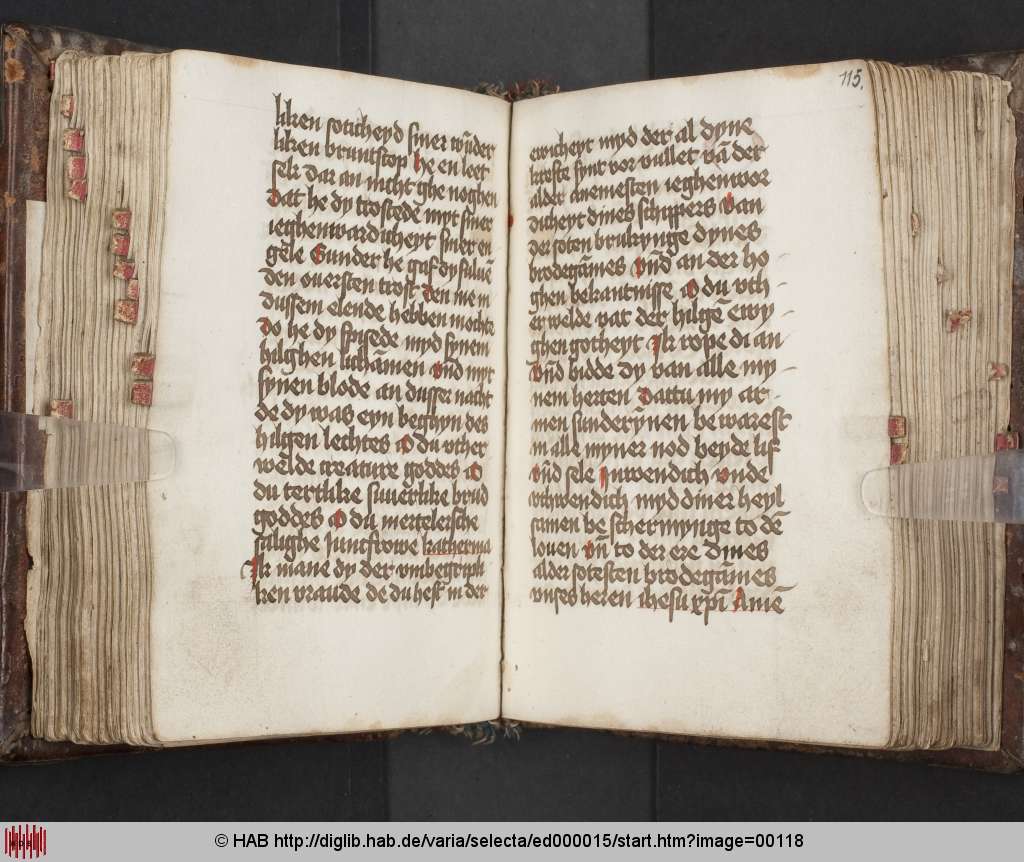 liken soticheyd syner wūder
liken bruntstop he en leet
sek dar an nicht ghe noghen
dat he dy trostede myt syner
ieghenwardicheyt syner en
gele Sunder he gaf dy suluē
den ouersten trost den men in
dussem elende hebben mochte
do he dy spisede myd synem
hilghen lichāmen vn̄d myt
synen blode an dusser nacht
de dy was eyn beghyn des
hilgen lechtes O du vther
welde creature goddes O
du tertlike suuerlike brud
goddes O du mertelersche
salighe Juncfrowe katherina
Ik mane dy der vmbegripli
ken vraude de du hest in der
115.
ewicheyt myd der al dyne
krefte synt vor vullet vā der
alder anemesten ieghenwor
dicheyt dines schippers van
der soten brukynge dynes
brodegāmes vn̄d an der ho
ghen bekantnisse O du vth
er welde vat der hilgē ewy
ghen gotheyt Ik rope di an
vn̄d bidde dy van alle my
nem herten dattu my ar
men sunderȳnen bewarest
in alle myner nod beyde lif
vn̄d sele inwendich vnde
vthwendich myd diner heyl
samen be schermynge to dē
louen vn̄ to der ere dines
alder sotesten brodegāmes
vnses heren ihesu xp̄i Amē
© HAB http://diglib.hab.de/varia/selecta/ed000015/start.htm?image=00118